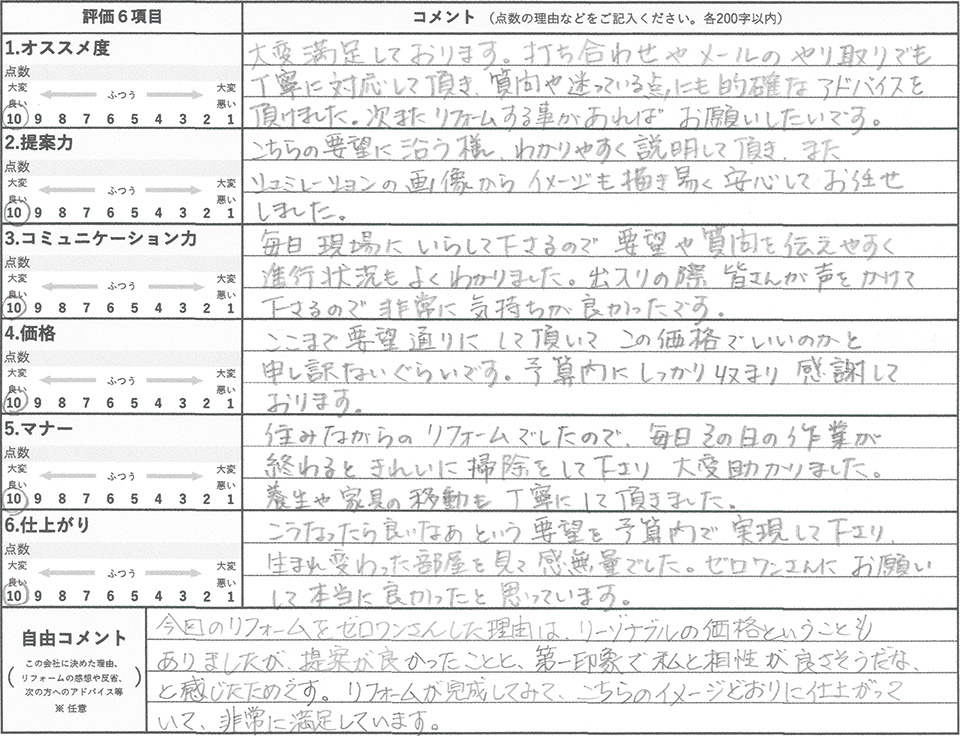 評価6項目
コメント (点数の理由などをご記入ください。各200字以内)
1.オススメ度
点数
大変 良い ふつう 大変 悪い
10 9 8 7 6 5 4 3 2 1
大変満足しております。打ち合わせやメールのやり取りでも
丁寧に対応して頂き、質問や迷っている点にも的確なアドバイスを
頂けました。次またリフォームする事があればお願いしたいです。
2.提案力
点数
大変 良い ふつう 大変 悪い
10 9 8 7 6 5 4 3 2 1
こちらの要望に沿う様、わかりやすく説明して頂き、また
リュミレーションの画像からイメージも描き易く安心してお任せ
しました。
3.コミュニケーション力
点数
大変 良い ふつう 大変 悪い
10 9 8 7 6 5 4 3 2 1
毎日現場にいらして下さるので要望や質問を伝えやすく
進行状況もよくわかりました。出入りの際皆さんが声をかけて
下さるので非常に気持ちが良かったです。
4.価格
点数
大変 良い ふつう 大変 悪い
10 9 8 7 6 5 4 3 2 1
ここまで要望通りにして頂いてこの価格でいいのかと
申し訳ないぐらいです。予算内にしっかり収まり感謝して
おります。
5.マナー
点数
大変 良い ふつう 大変 悪い
10 9 8 7 6 5 4 3 2 1
住みながらのリフォームでしたので、毎日その日の作業が
終わるときれいに掃除をして下さり大変助かりました。
養生や家具の移動も丁寧にして頂きました。
6.仕上がり
点数
大変 良い ふつう 大変 悪い
10 9 8 7 6 5 4 3 2 1
こうなったら良いなあという要望を予算内で実現して下さり、
生まれ変わった部屋を見て感無量でした。ゼロワンさんにお願い
して本当に良かったと思っています。
自由コメント
(この会社に決めた理由、
リフォームの感想や反省、
次の方へのアドバイス等)
※任意
今回のリフォームをゼロワンさんした理由は、リーゾナブルの価格ということも
ありましたが、提案が良かったことと、第一印象で私と相性が良さそうだな、
と感じたためえす。リフォームが完成してみて、こちらのイメージどおりに仕上がって
いて、非常に満足しています。